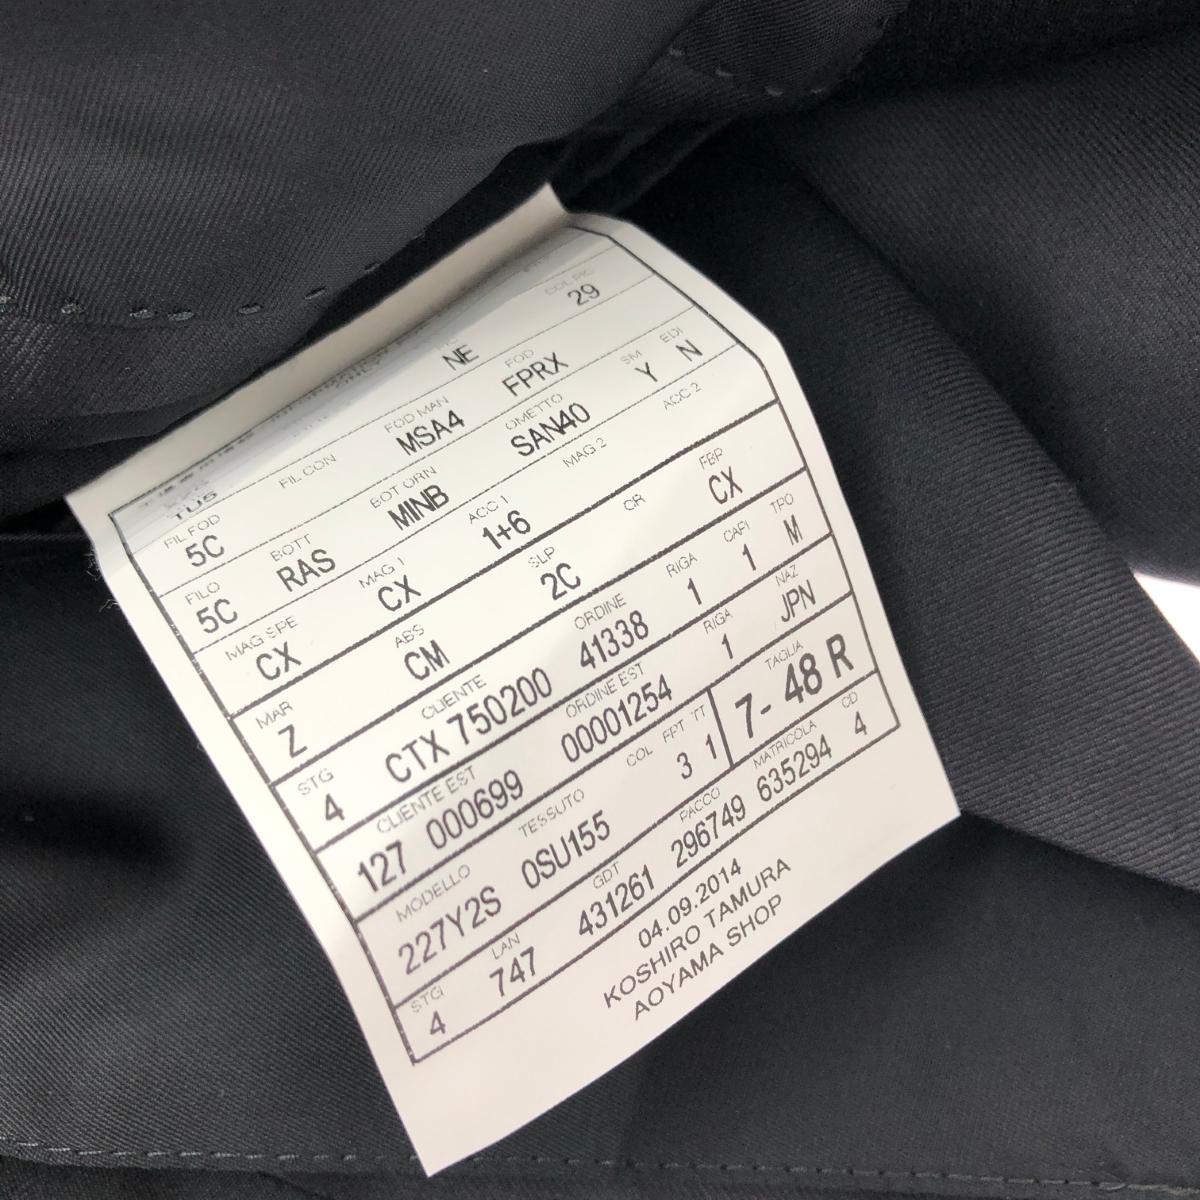 COL PIC
NE 29
TUS FIL CON FOD MAN FOD
MSA4 FPRX
FIL FOD BOT ORN OMETTO SM EDI
5C MINB SAN40 Y N
FILO BOTT ACC 1 MAG 2 ACC 2
5C RAS 1+6
MAG SPE MAG 1 CR FBP
CX CX CX
ABS SLP
CM 2C
MAR CLIENTE ORDINE RIGA CAPI TPO
Z CTX 750200 41338 1 1 M
STG CLIENTE EST ORDINE EST RIGA NAZ
4 127 000699 00001254 1 JPN
MODELLO TESSUTO COL FPT TT TAGLIA
227Y2S 0SU155 3 1 7- 48 R
STG LAN GDT PACCO MATRICOLA CD
4 747 431261 296749 635294 4
04.09.2014
KOSHIRO TAMURA
AOYAMA SHOP